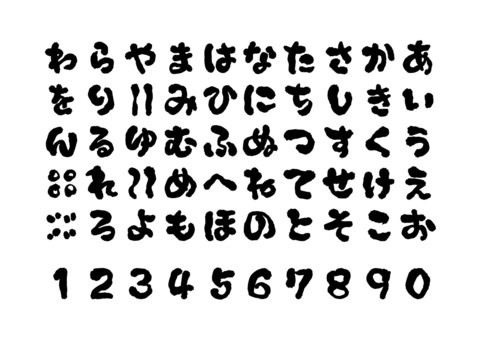 あいうえお
かきくけこ
さしすせそ
たちつてと
なにぬねの
はひふへほ
まみむめも
やゆよ
らりるれろ
わをん
1234567890